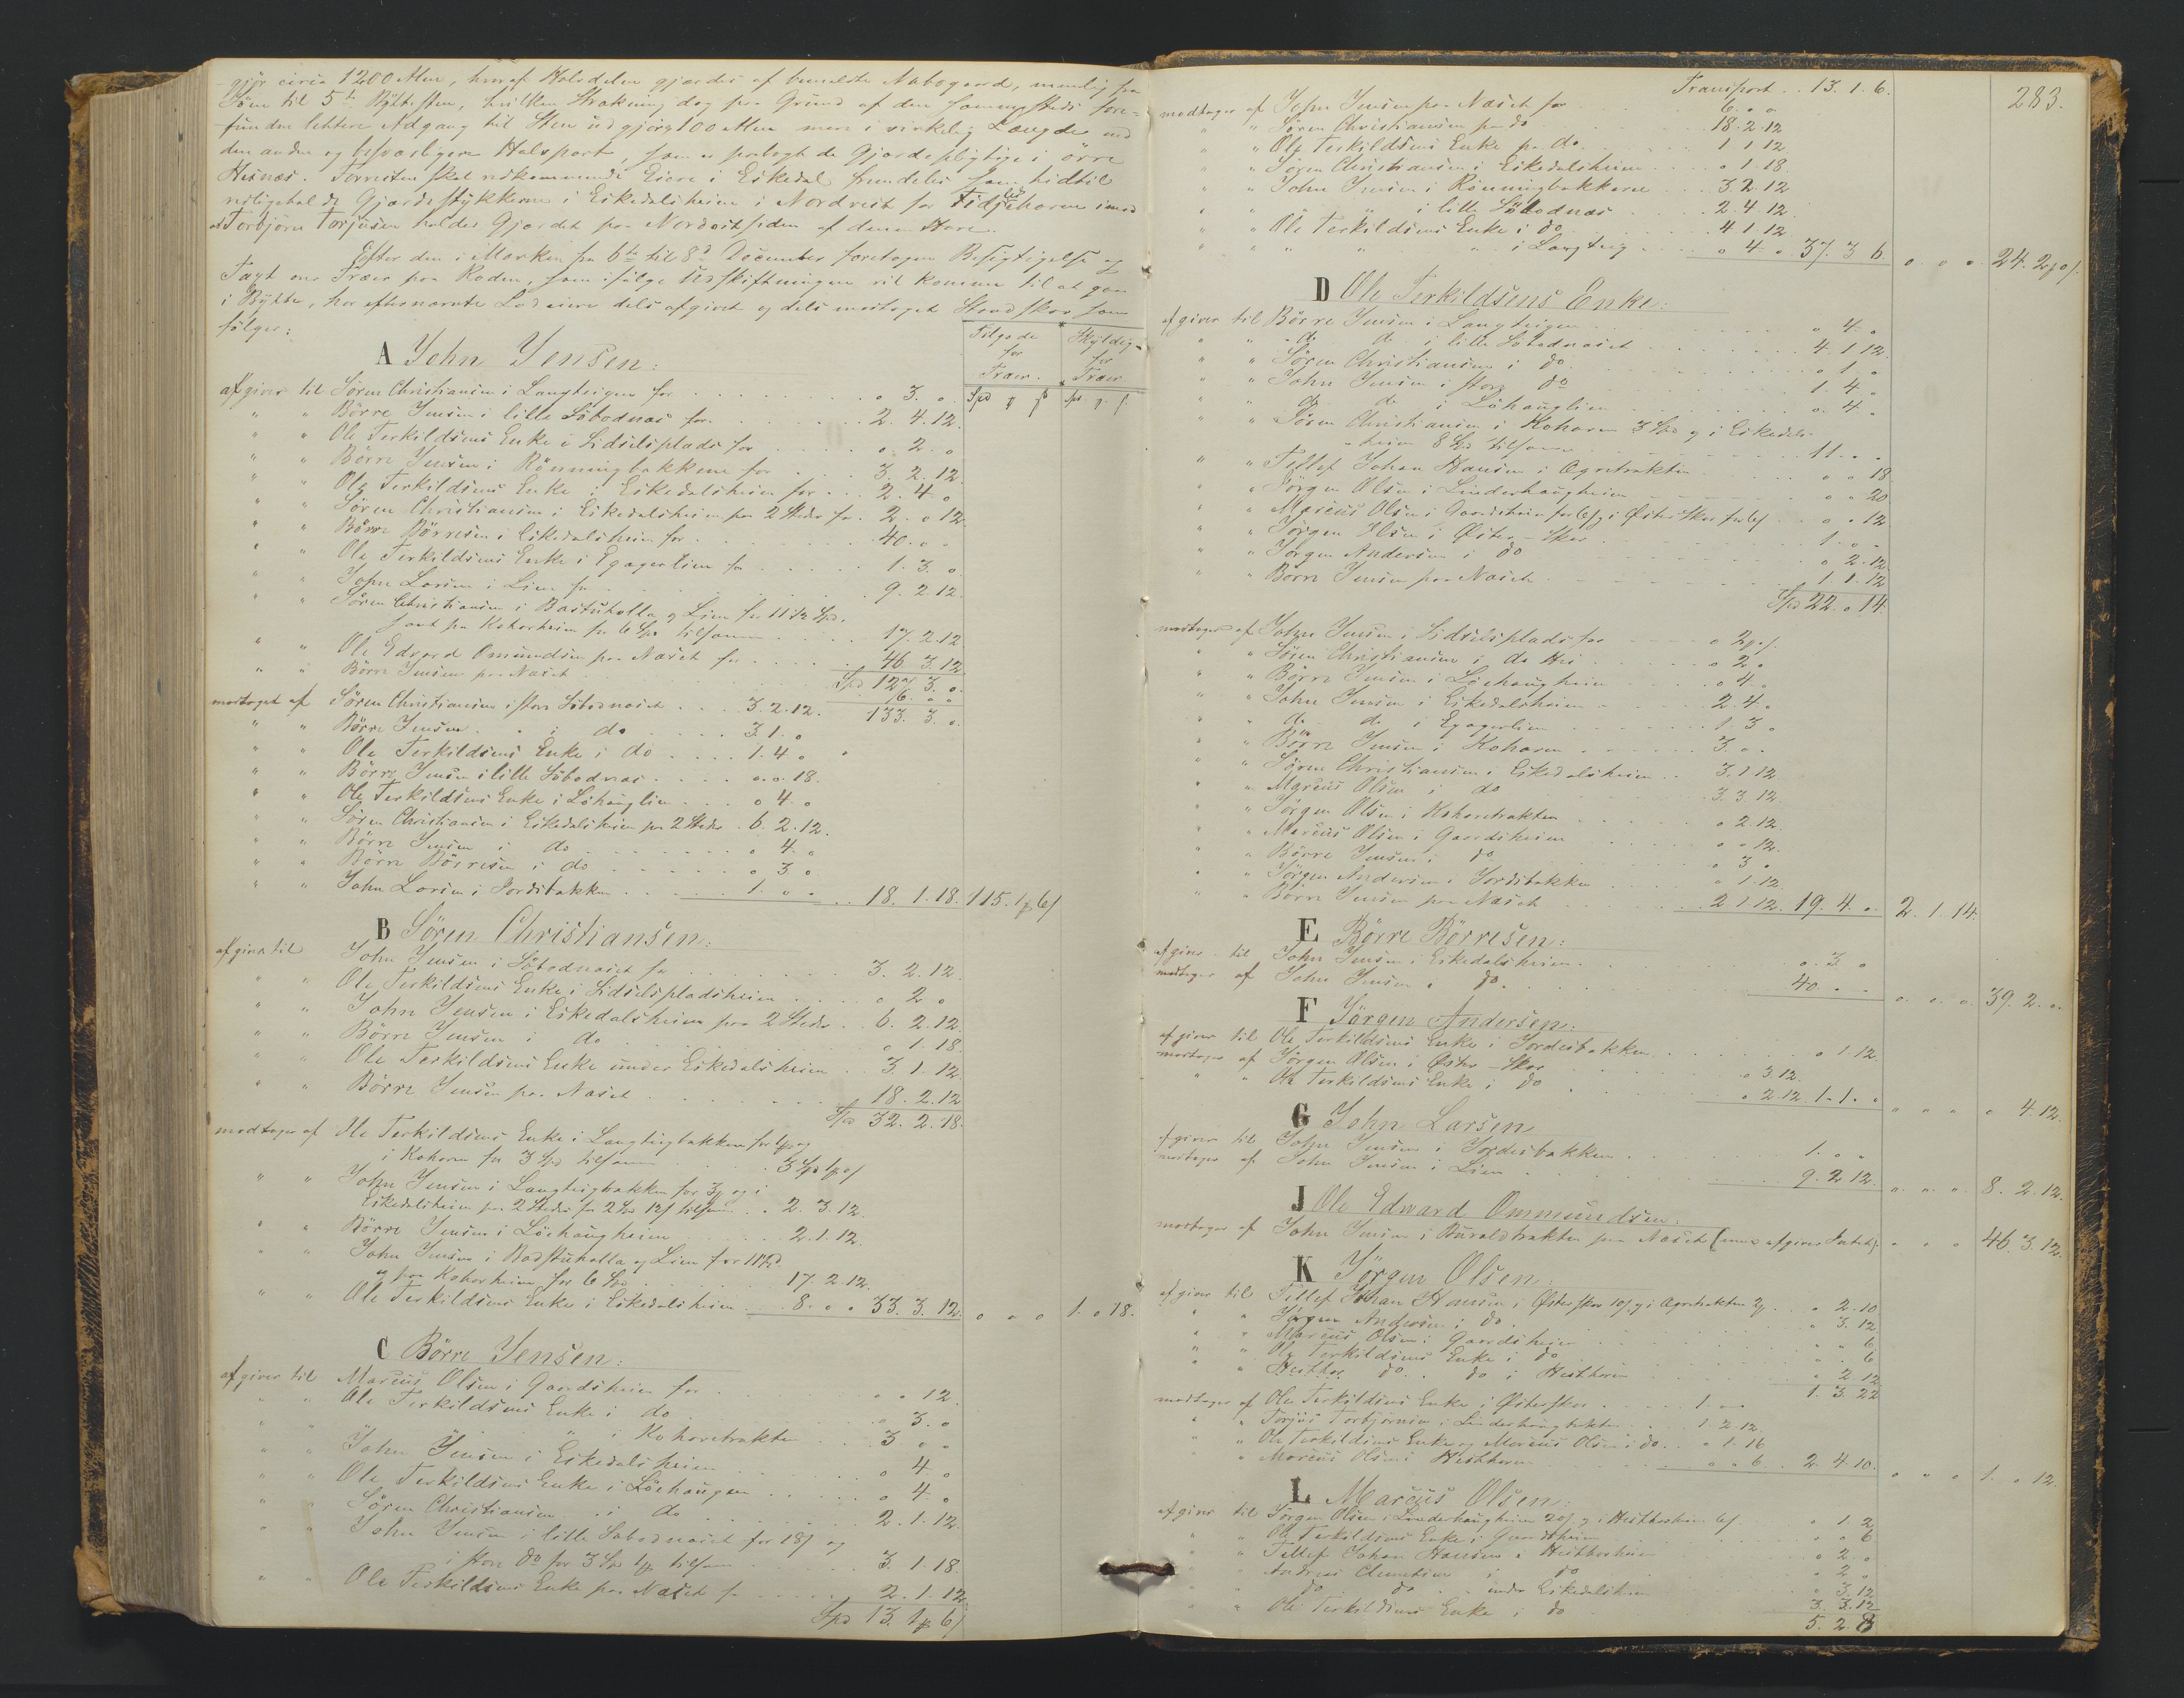 gjör circa 1200 Alen, hvoraf Halvdelen gjærdes af bemeldte Nabogaard, nemlig fra
Söen til 5te Bÿttesten, hvilken Strækning dog paa Grund af den sammesteds fore-
funden lettere Adgang til Sten udgjörg 100 Alen mere i virkelig Længde end
den anden og besværligere Halvpart, som er paalagt de Gjærdepligtige i örre
Hesnæs. Forresten skal vedkommende Eiere i Eskedal fremdeles som hidtil
vedligeholde Gjærdestykkerne i Eskedalsheien i Nordvest for Tidjehaven imod
at Torbjörn Torjusen holder Gjærdet paa Nordostsiden af denne Have.
Efter den i Marken fra 6te til 8de December foretagen Besigtigelse og
Taxt over Træer paa Roden, som ifölge Udskiftningen vil komme til at gaa
i Bÿtte, har efternævnte Lodeiere dels afgivet og dels modtaget Skov som
fölger:
Tilgode for Træer. Skÿldig for Træer.
A John Jensen:
afgiver til Sören Christiansen i Langteigen for 3.
" " Börre Jensen i lille Söbodnæs for 2. 4. 12.
" " Ole Terkildsens Enke i Sidselsplads for 2.
" " Börre Jensen i Rönningbakkene for 3. 2. 12.
" " Ole Terkildsens Enke i Eskedalsheien for 2. 4.
" " Sören Christiansen i Eskedalsheien paa 2 Steder for 2. 12.
" " Börre Börresen i Eskedalsheien for 40.
" " Ole Terkildsens Enke i Egagerlien for 1. 3.
" " John Larsen i Lien for 9. 2. 12.
" " Sören Christiansen i Bastuholla og Lien for 11 Spd
samt paa Kohavheien for 6 Spd tilsammen 17. 2. 12
" " Ole Edvard Omundsen paa Næset for 46. 3. 12
" " Börre Jensen paa Næset Spd 127. 3.
6.
modtaget af Sören Christiansen i store Söbodnæset 3. 2. 12. 133. 3.
" " Börre Jensen i do 3. 1.
" " Ole Terkildsens Enke i do 1. 4.
" " Börre Jensen i lille Söbodnæs 18.
" " Ole Terkildsens Enke i Löhauglien 4.
" " Sören Christiansen i Eskedalsheien paa 2 Steder 6. 2. 12.
" " Börre Jensen i do 4.
" " Börre Börresen i do 3.
" " John Larsen i Jordsbakken 1. 18. 1. 18. 115. 1 6
B Sören Christiansen:
afgiver til John Jensen i Söbodnæset for 3. 2. 12.
" " Ole Terkildsens Enke i Sidselspladsheien 2.
" " John Jensen i Eskedalsheien paa 2 Steder 6. 2. 12.
" " Börre Jensen i do 1. 18.
" " Ole Terkildsens Enke under Eskedalsheien 3. 1. 12.
" " Börre Jensen paa Næset 18. 2. 12
Spd 32. 2. 18.
modtager af Ole Terkildsens Enke i Langteigbakken for 1 og
i Kohaven for 3 Spd tilsammen 3 Spd 1
" " John Jensen i Langteigbakken for 3 og i
Eskedalsheien paa 2 Steder for 2 Spd 12 tilsammen 2. 3. 12.
" " Börre Jensen i Löehaugheien 2. 1. 12.
" " John Jensen i Badstuholla og Lien for 11 Spd
og paa Kohavheien for 6 Spd 17. 2. 12.
" " Ole Terkildsens Enke i Eskedalsheien 8. 33. 3. 12. 1. 18.
C Börre Jensen:
afgiver til Marcus Olsen i Gaardsheien for 12
" " Ole Terkildsens Enke i do 3.
" " " i Kohavetrakten 3
" " John Jensen i Eskedalsheien 4.
" " Ole Terkildsens Enke i Löehaugen 4.
" " Sören Christiansen i do 2. 1. 12.
" " John Jensen i lille Söbodnæset for 18 og
i store do for 3 Spd 1 tilsammen 3. 1. 18.
" " Ole Terkildsens Enke paa Næset for 2. 1. 12.
Spd 13. 1 6
283.
Transport 13. 1. 6.
modtager af John Jensen paa Næset for 6.
" " Sören Christiansen paa do 18. 2. 12
" " Ole Terkildsens Enke paa do. 1 1 12.
" " Sören Christiansen i Eskedalsheien 1. 18.
" " John Jensen i Rönningbakkene 3. 2. 12
" " " i lille Söbodnæs 2. 4. 12.
" " Ole Terkildsens Enke i do 4 1 12.
" " " " i Langteig 4. 37. 3 6. 24. 2
D Ole Terkildsens Enke:
afgiver til Börre Jensen i Langteigen 4.
" " do do i lille Söbodnæset 4. 1 12.
" " Sören Christiansen i do 1.
" " John Jensen i store do 1. 4.
" " do do i Löhauglien 4.
" " Sören Christiansen i Kohaven 3 Spd og i Eskedals-
heien 8 Spd tilsammen 11.
" " Tellef Johan Hansen i Agretrakten 18
" " Jörgen Olsen i Linderhaugheien 20
" " Marcus Olsen i Gaardsheien for 6 og i Österskov for 6 12
" " Jörgen Olsen i Öster-Skov 1.
" " Jörgen Andersen i do 2. 12.
" " Börre Jensen paa Næset 1. 1. 12
Spd 22. 14.
modtager af John Jensen i Sidselsplads for 2
" " Sören Christiansen i do Hei 2.
" " Börre Jensen i Löehaugheien 4.
" " John Jensen i Eskedalsheien 2. 4.
" " do do i Egagerlien 1. 3.
" " Börre Jensen i Kohaven 3.
" " Sören Christiansen i Eskedalsheien 3. 1 12.
" " Marcus Olsen i do 3. 3. 12.
" " Jörgen Olsen i Kohavetrakten 2. 12.
" " Marcus Olsen i Gaardsheien 12.
" " Börre Jensen i do 3.
" " Jörgen Andersen i Jordsbakken 1. 12.
" " Börre Jensen paa Næset 2 1 12. 19. 4. 2. 1. 14.
E Börre Börresen:
afgiver til John Jensen i Eskedalsheien 3
modtager af John Jensen i do. 40. 39. 2.
F Jörgen Andersen:
afgiver til Ole Terkildsens Enke i Jordesbakken 1. 12.
modtager af Jörgen Olsen i Öster-Skov 3. 12.
" " Ole Terkildsens Enke i do 2. 12. 1. 1. 4. 12.
G John Larsen
afgiver til John Jensen i Jordesbakken 1.
modtager af John Jensen i Lien 9. 2 12. 8. 2. 12.
J Ole Edward Ommundsen:
modtager af John Jensen i trakten paa Næset (men afgiver Intet). 46. 3. 12.
K Jörgen Olsen:
afgiver til Tellef Johan Hansen i Österskov 10 og i Agretrakten 2 2. 10.
" " Jörgen Andersen i do. 3. 12
" " Marcus Olsen i Gaardsheien 6
" " Ole Terkildsens Enke i do 6
" " do do i Hestheien 2 12
1. 3. 22
modtager af Ole Terkildsens Enke i Österskov 1.
" " Torjus Torbjörnsen i Linderhaugtrakten 1. 2. 12.
" " Ole Terkildsens Enke og Marcus Olsen i do 1. 16
" " Marcus Olsen i 6. 2. 4. 10. 1. 12
L Marcus Olsen:
afgiver til Jörgen Olsen i Linderhaugheien 20 og i 6 1. 2
" " Ole Terkildsens Enke i Gaardsheien 6
" " Tellef Johan Hansen i 2.
" " Andreas Clemetsen i do 2.
" " do do under Eskedalsheien 3. 12
" " Ole Terkildsens Enke i do 3. 3. 12
5. 2. 8